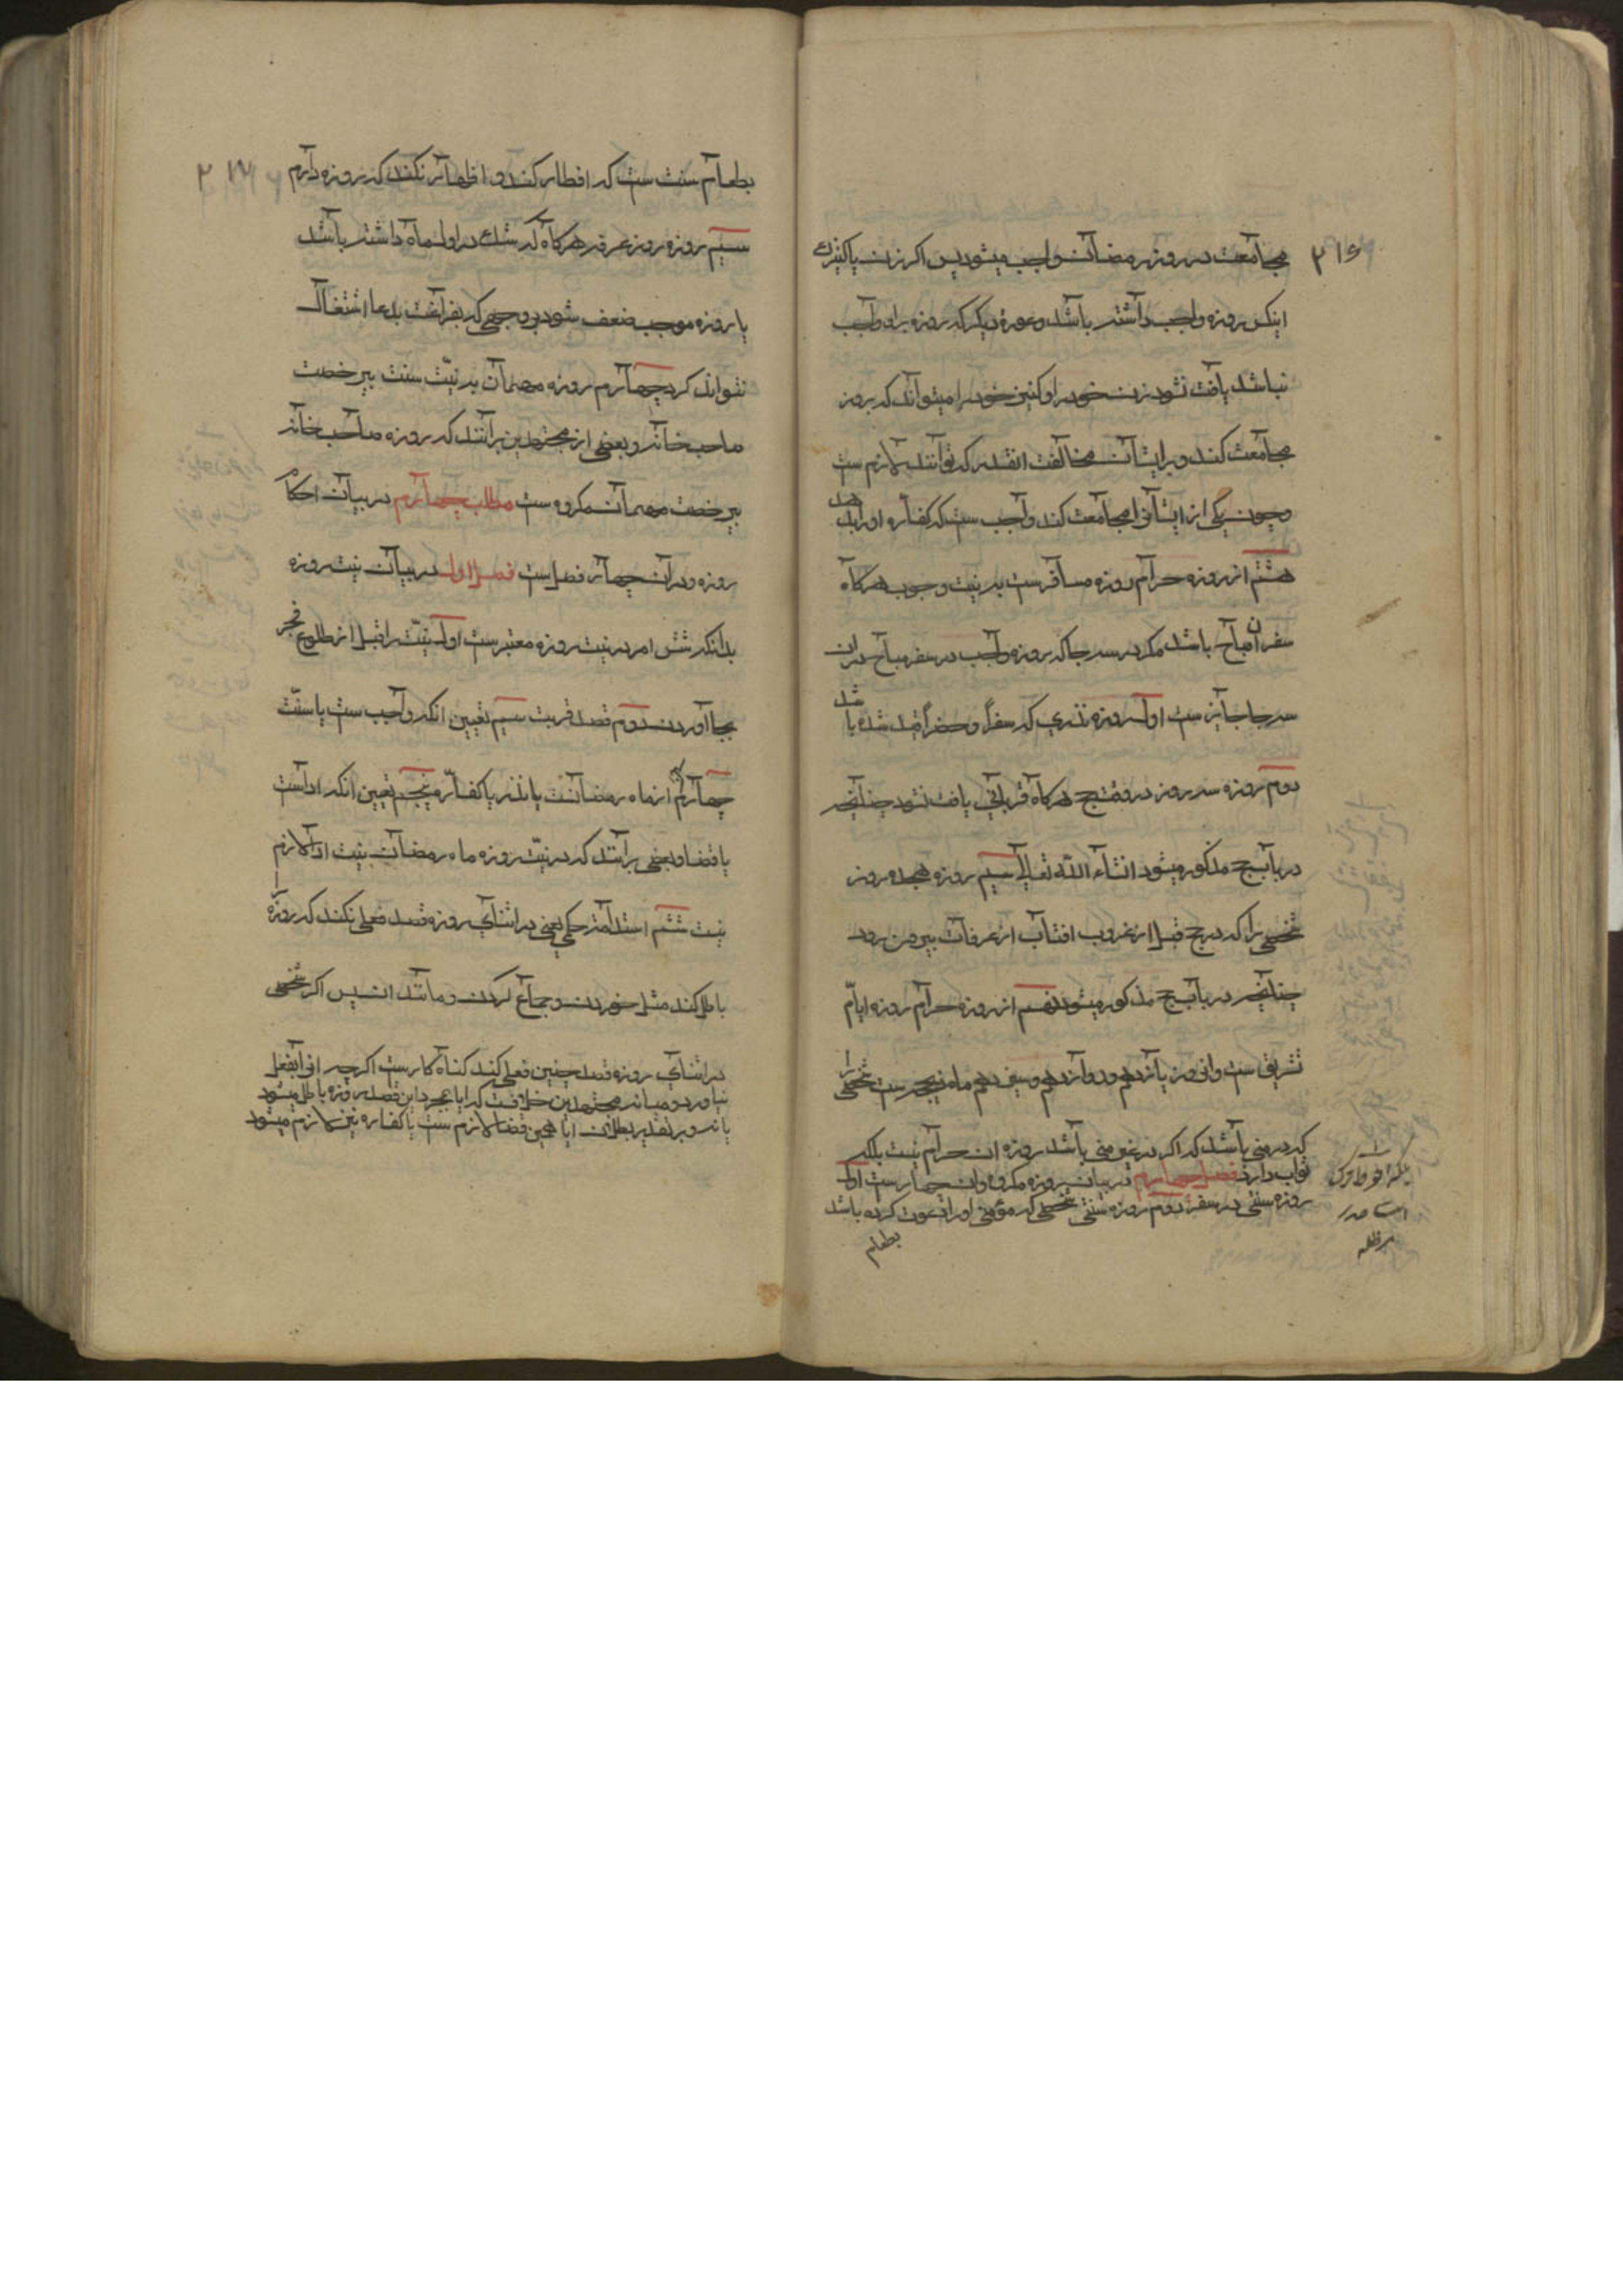 ۲۱۶
مجامعت در روز رمضان واجب میشود پس اکر زن یا کنیزک
اینکس روزه واجب داشته باشد و عورة دیکر که روزه برا و واجب
نباشد یافت نشود زن خود را و کنیز خود را میتواند که بروز
مجامعت کند و بر ایشان مخالفت انقدر که توانند لازم ست
و چون یکی از ایشان را مجامعت کند واجب ست که کفاره او را بدهد
هشتم از روزه حرام روزه مسافرست به نیت وجوب هرکاه
سفر ان مباح باشد مکر در سه جا که روزه واجب در سفر مباح دران
سه جا جایز ست اول روزه نذری که سفرا و حضرا قید شده باشد
دوم روزه سه روز در وقت حج هرکاه قربانی یافت نشود چنانچه
در باب حج مذکور میشود انشاء الله تعالی سیم روزه هجده روز
شخصی را که در حج قبل از غروب افتاب از عرفات بیرون رود
چنانچه در باب حج مذکور میشود نهم از روزه حرام روزه ایام
تشریق ست وان روز یازدهم و دوازدهم و سیزدهم ماه ذیحجه ست شخصی را
که در منی باشد که اکر در غیر منی باشد روزه ان حرام نیست بلکه
ثواب دارد فصل چهارم در بیان روزه مکروه وان چهارست اول
روزه سنتی در سفر دوم روزه سنتی شخصی که مؤمنی او را دعوت کرده باشد
بطعام
بطعام سنت ست که افطار کند و اظهار نکند که روزه دارم
سیم روزه روز عرفه هرکاه که شک در اول ماه داشته باشد
یا روزه موجب ضعف شود بروجهی که بفراغت بدعا اشتغال
نتواند کرد چهارم روزه مهمان به نیت سنت بیرخصت
صاحب خانه و بعضی از مجتهدین برانند که روزه صاحب خانه
بیرخصت مهمان مکروه ست مطلب چهارم در بیان احکام
روزه و دران چهار فصل ست فصل اول در بیان نیت روزه
بدانکه شش امر در نیت روزه معتبرست اول نیت را قبل از طلوع فجر
بجا آوردن دوم قصد قربت سیم تعیین انکه واجب ست یا سنت
چهارم انکه از ماه رمضانست یا نذر یا کفاره پنجم تعیین انکه اداست
یا قضا و بعضی برانند که در نیت روزه ماه رمضان نیت ادا لازم
نیست ششم استدامة حکمی یعنی در اثنای روزه قصد فعلی نکند که روزه را
باطل کند مثل خوردن و جماع کردن و مانند ان پس اکر شخصی
در اثنای روزه قصد چنین فعلی کند کناه کارست اکرچه انرا بفعل
نیاورد و میانه مجتهدین خلافست که ایا بمجرد این قصد روزه باطل میشود
یا نه و بر تقدیر بطلان ایا همین قضا لازم ست یا کفاره نیز لازم میشود